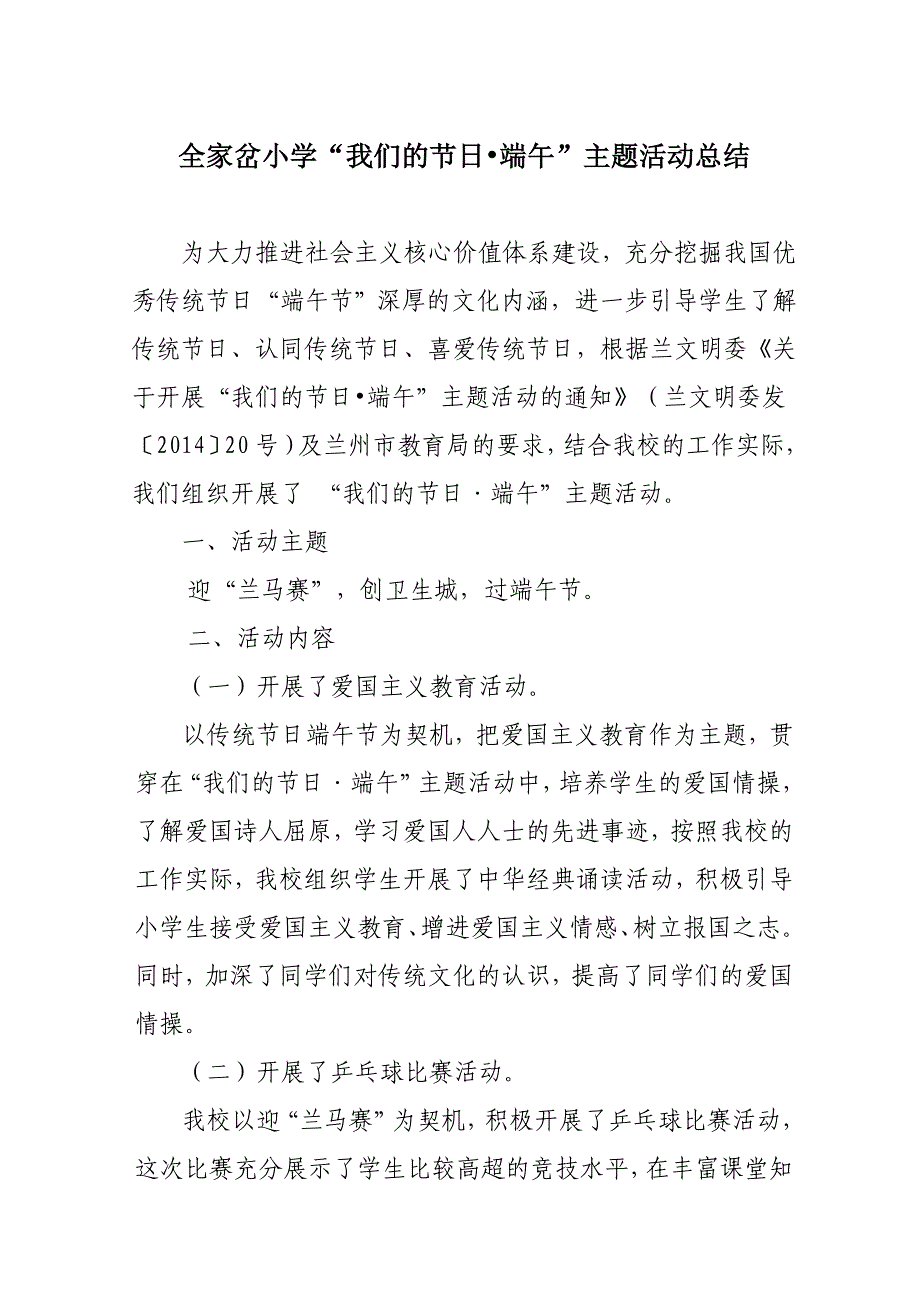 全家岔小学“我们的节日•端午”主题活动总结
为大力推进社会主义核心价值体系建设，充分挖掘我国优
秀传统节日 “端午节”深厚的文化内涵，进一步引导学生了解
传统节日、认同传统节日、喜爱传统节日，根据兰文明委《关
于开展“我们的节日•端午”主题活动的通知》（兰文明委发
〔2014〕20 号）及兰州市教育局的要求，结合我校的工作实际，
我们组织开展了 “我们的节日·端午”主题活动。
一、活动主题
迎“兰马赛”，创卫生城，过端午节。
二、活动内容
（一）开展了爱国主义教育活动。
以传统节日端午节为契机，把爱国主义教育作为主题，贯
穿在“我们的节日·端午”主题活动中，培养学生的爱国情操，
了解爱国诗人屈原，学习爱国人人士的先进事迹，按照我校的
工作实际，我校组织学生开展了中华经典诵读活动，积极引导
小学生接受爱国主义教育、增进爱国主义情感、树立报国之志。
同时，加深了同学们对传统文化的认识，提高了同学们的爱国
情操。
（二）开展了乒乓球比赛活动。
我校以迎“兰马赛”为契机，积极开展了乒乓球比赛活动，
这次比赛充分展示了学生比较高超的竞技水平，在丰富课堂知